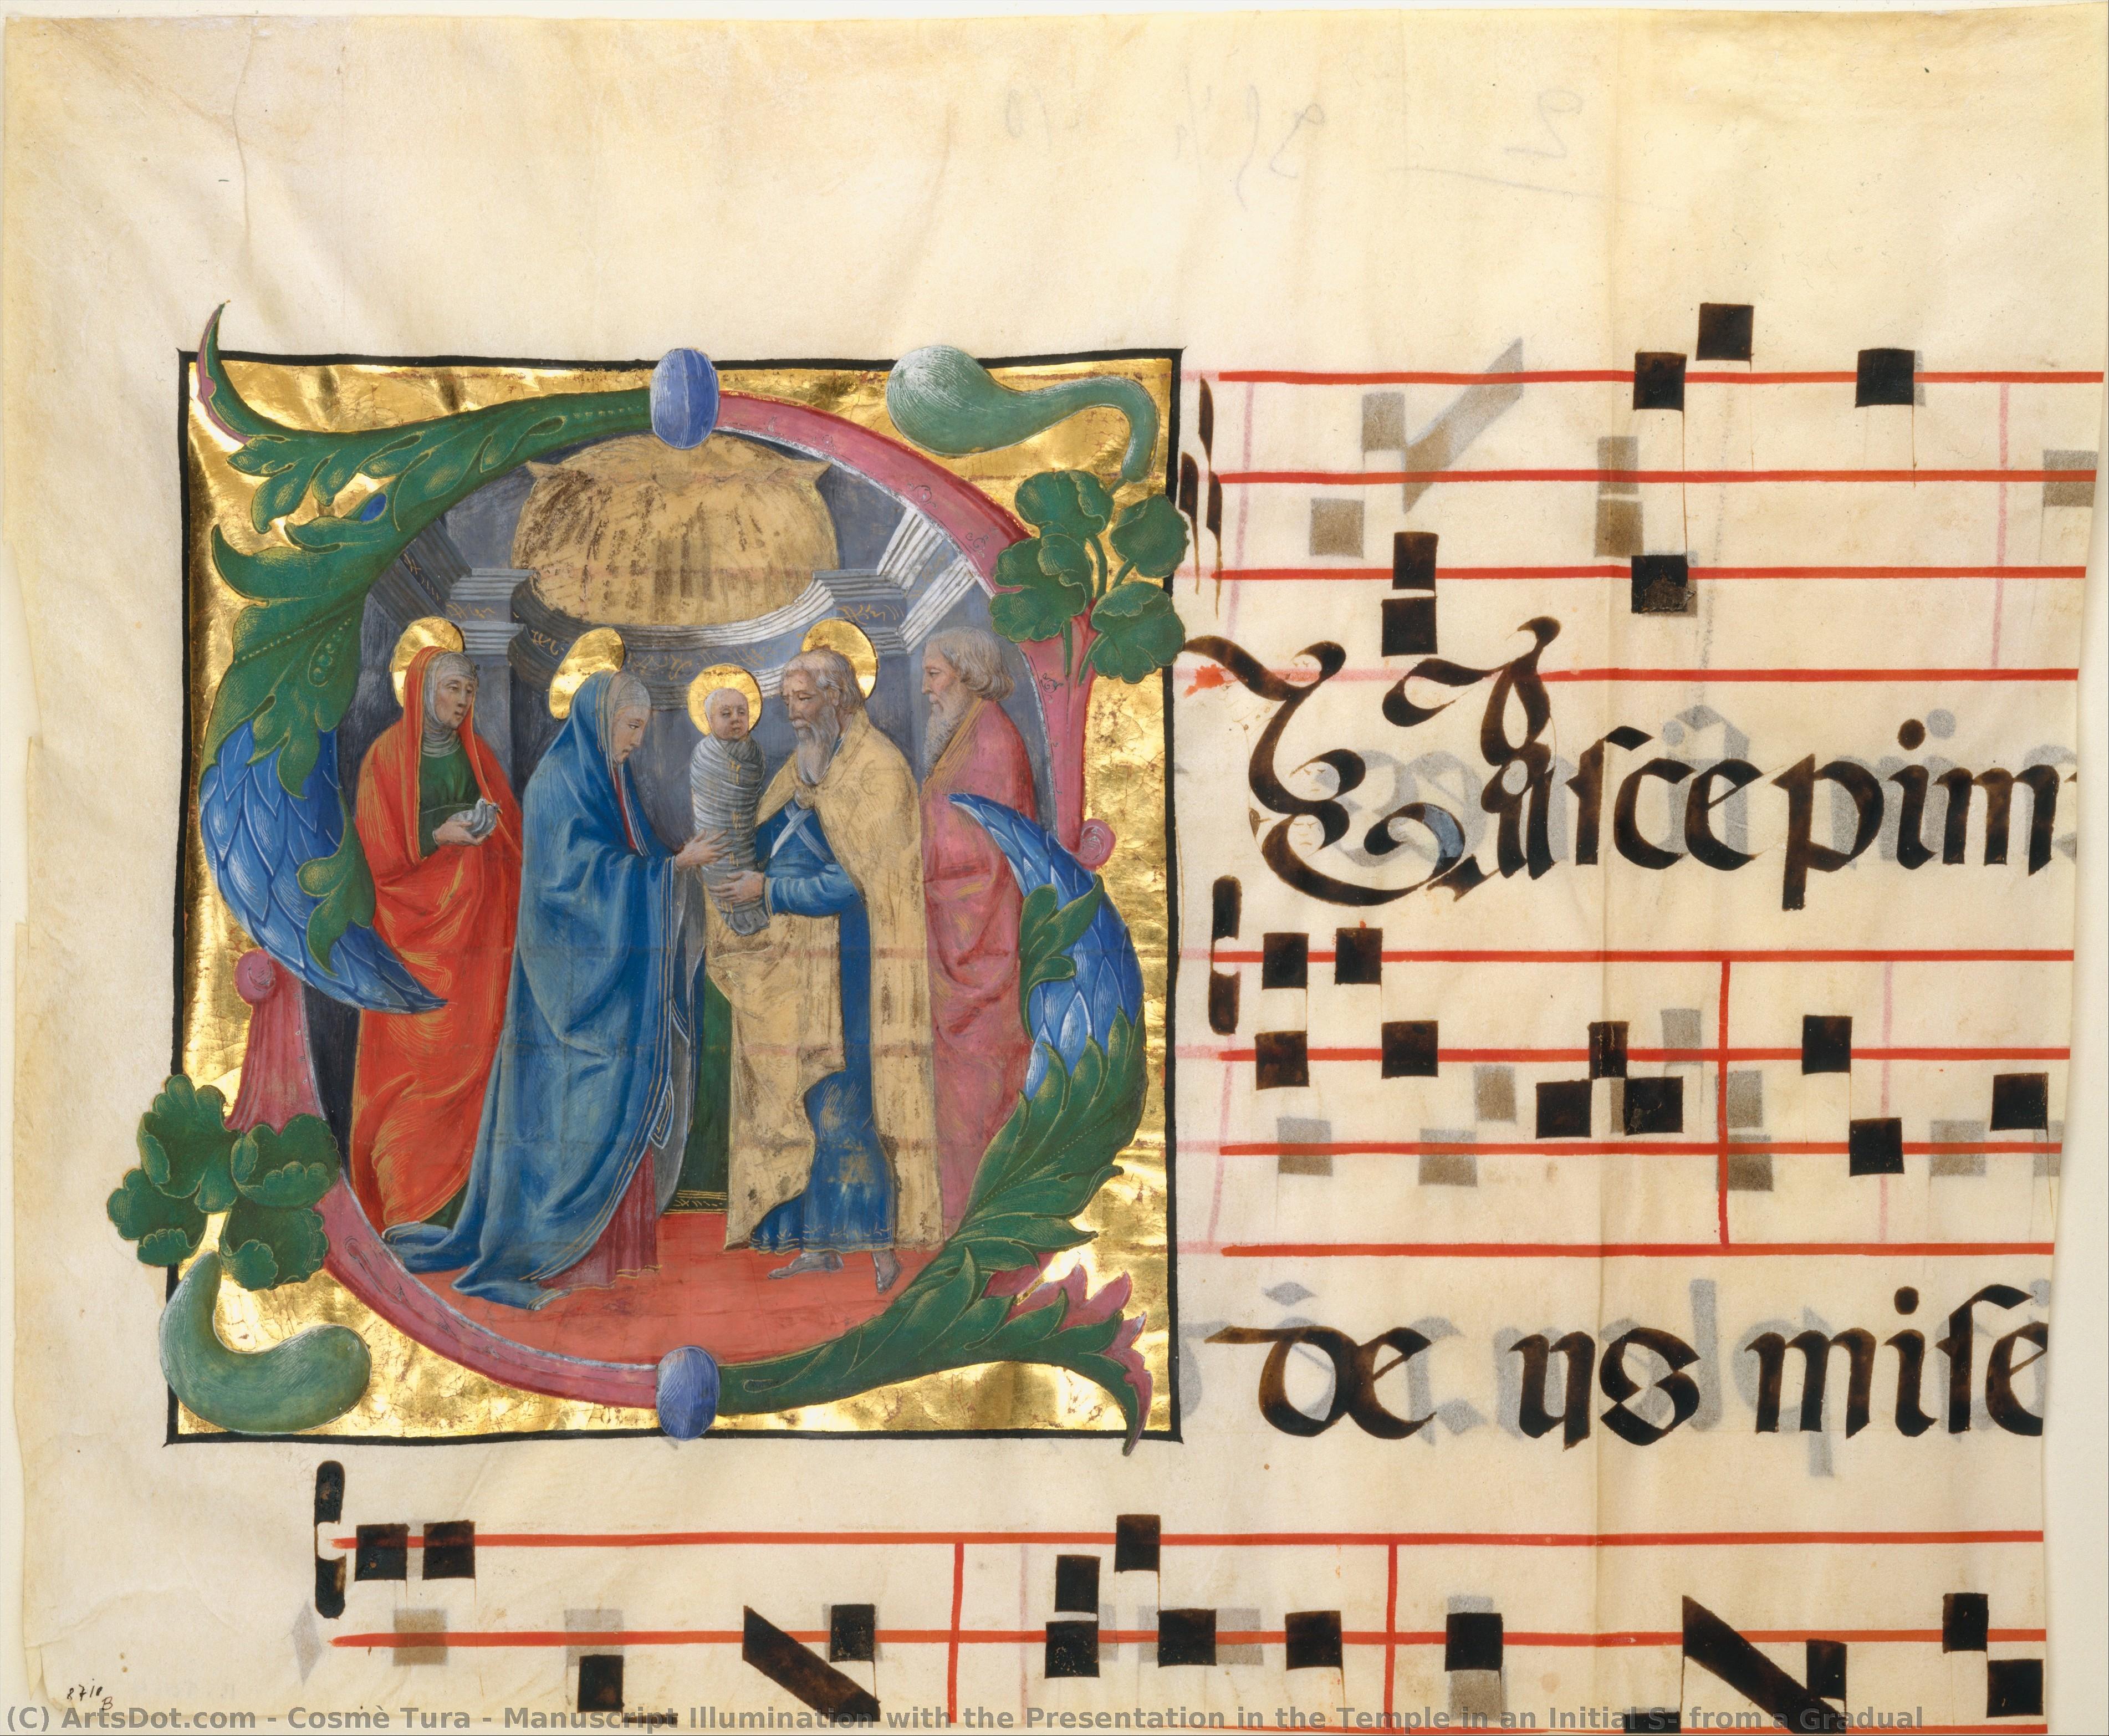 Suscepim
de us mise
87/8
B
(C) ArtsDot.com - Cosmè Tura - Manuscript Illumination with the Presentation in the Temple in an Initial S- from a Gradual